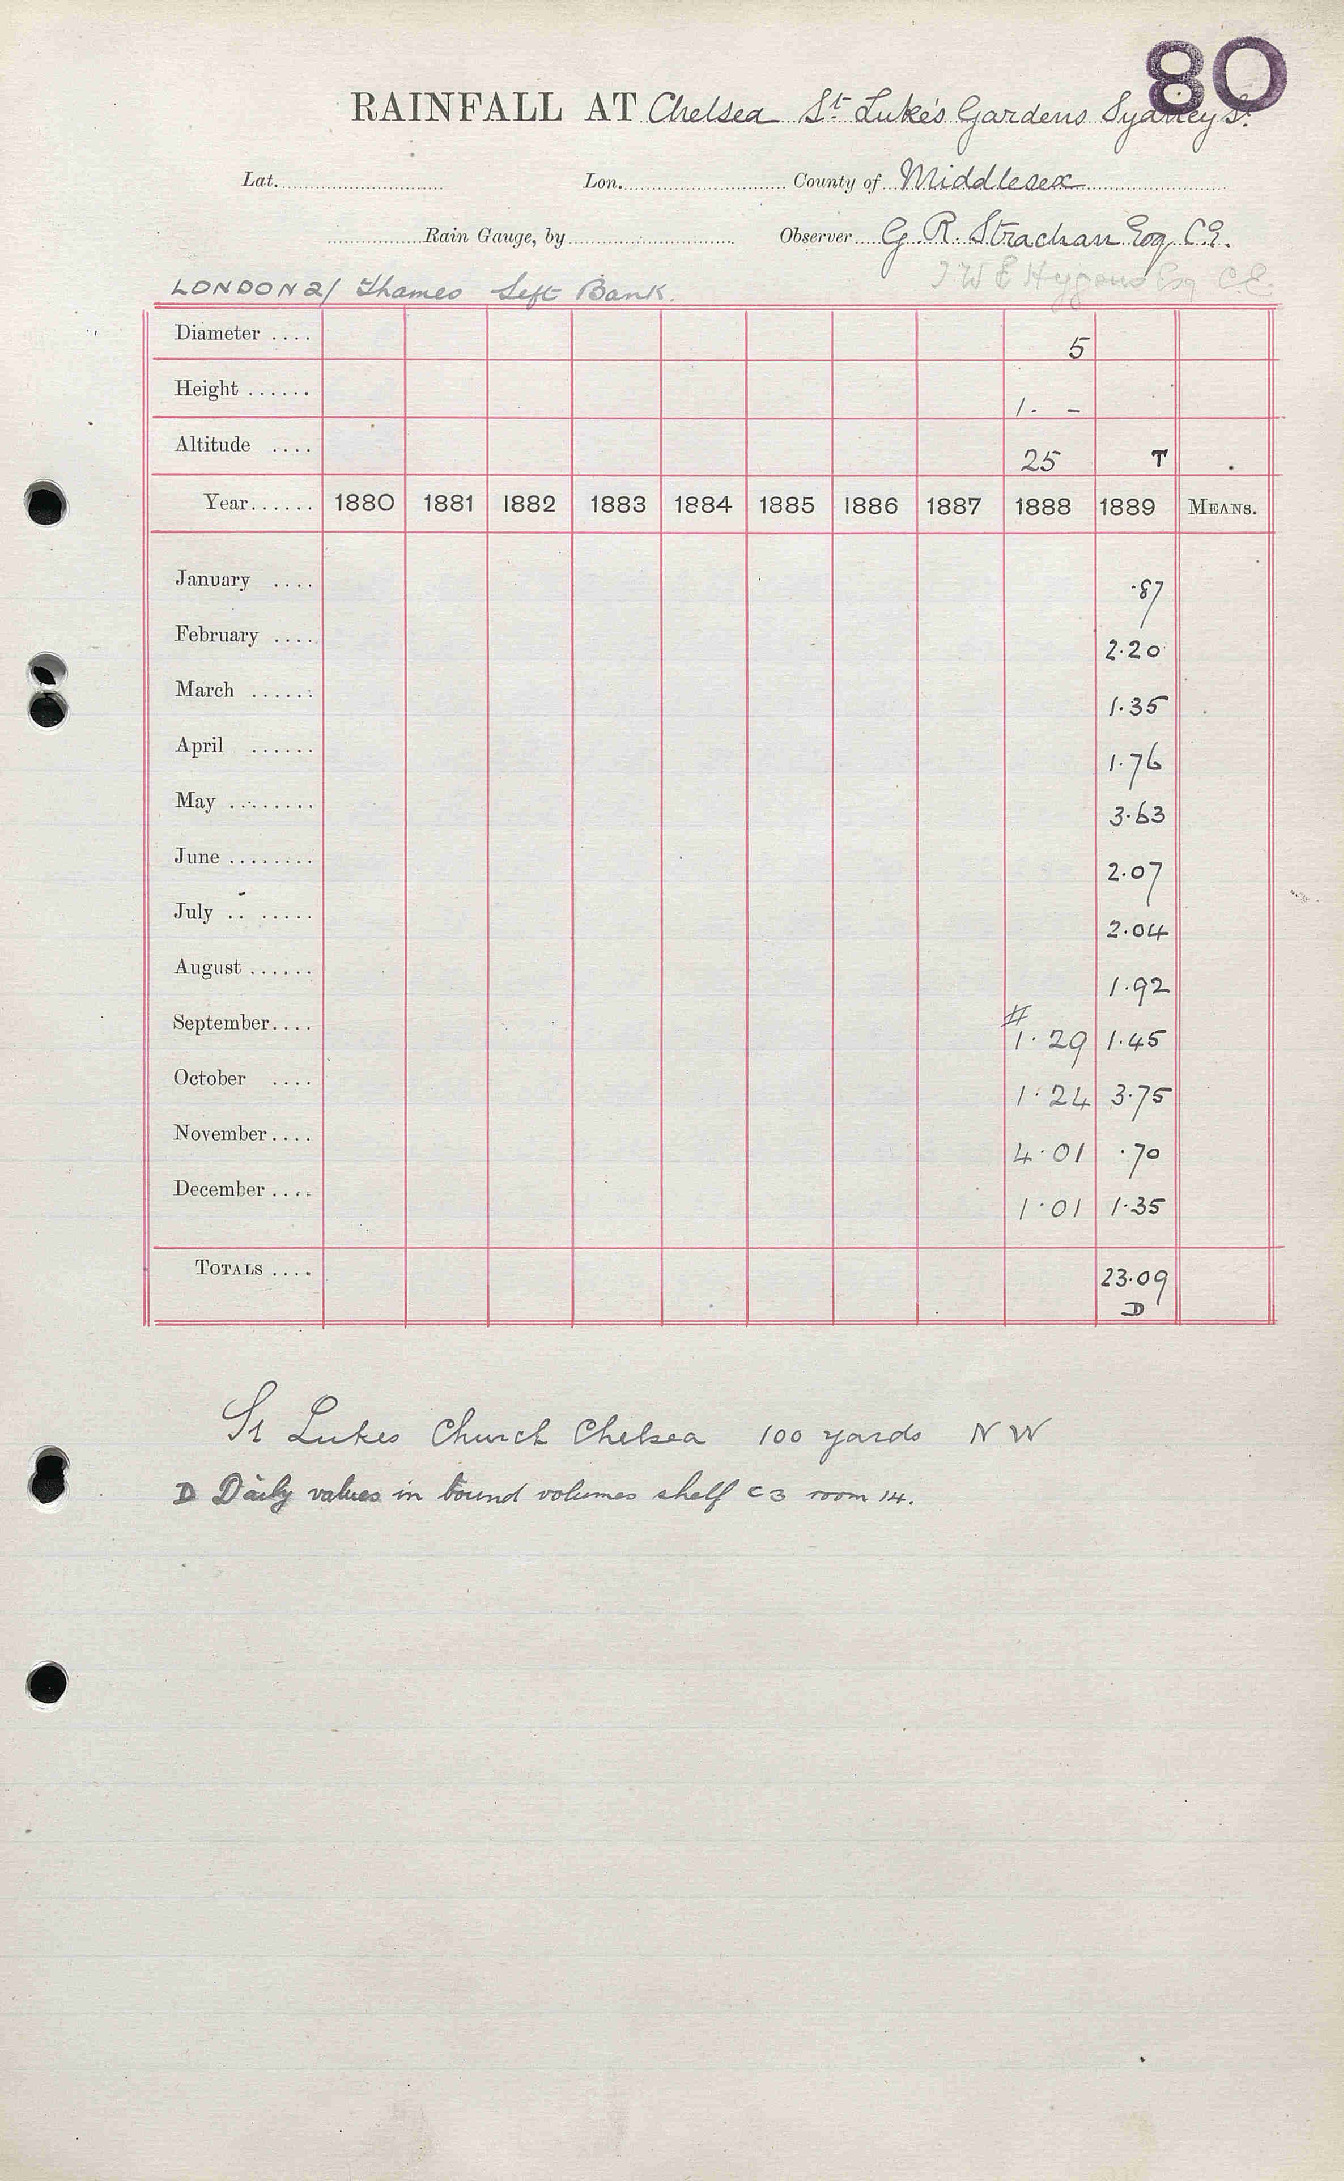 80
RAINFALL AT Chelsea St Luke's Gardens Sydney St.
Lat. Lon. County of Middlesex
Rain Gauge, by Observer G. R. Strachan Esq C.E.
T W E Higgens Esq C.E.
LONDON 2/ Thames Left Bank.
Diameter .... 5
Height ...... 1. –
Altitude .... 25 T
Year...... 1880 1881 1882 1883 1884 1885 1886 1887 1888 1889 MEANS.
January .... ·87
February .... 2·20
March ...... 1·35
April ...... 1·76
May ........ 3·63
June ........ 2·07
July .. ..... 2·04
August ...... 1·92
September.... # 1·29 1·45
October .... 1·24 3·75
November.... 4·01 ·70
December.... 1·01 1·35
TOTALS .... 23·09
D
St Lukes Church Chelsea 100 yards NW
D Daily values in bound volumes shelf C3 room 14.